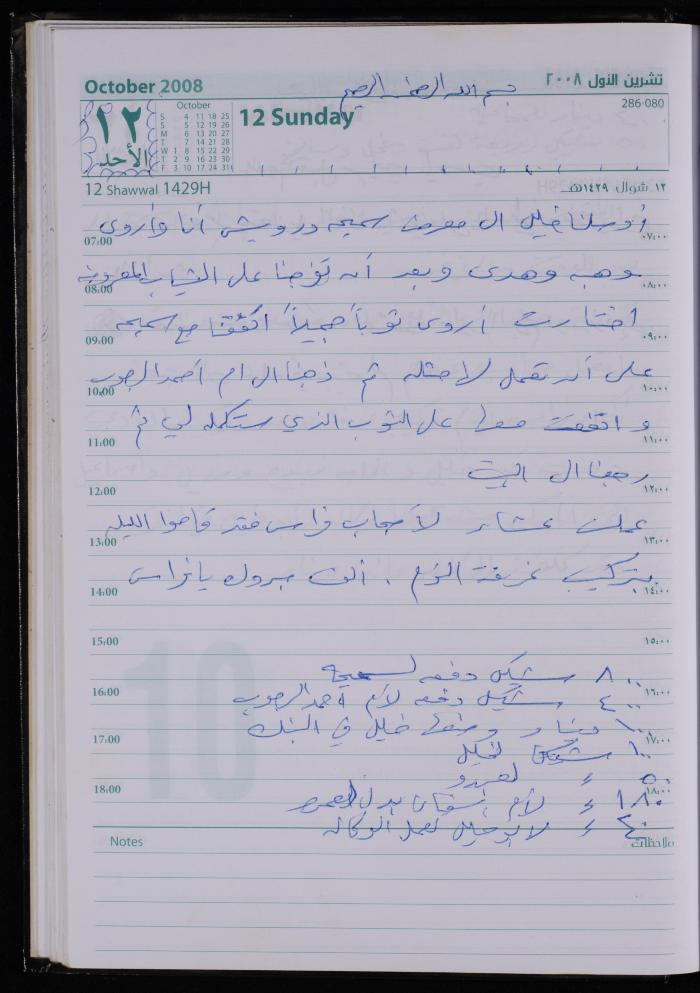 October 2008
تشرين الأول ٢٠٠٨
بسم الله الرحمن الرحيم
286-080
١٢
الأحد
October
S 4 11 18 25
S 5 12 19 26
M 6 13 20 27
T 7 14 21 28
W 1 8 15 22 29
T 2 9 16 23 30
F 3 10 17 24 31
12 Sunday
12 Shawwal 1429H
١٢ شوال ١٤٢٩هـ
أوصلنا خليل الى معرض سميحه درويش أنا وأروى
07:00 ٠٧:٠٠
وهبه وهدى وبعد أن تفرجنا على الثياب المعروضه
08:00 ٠٨:٠٠
اختارت أروى ثوباً جميلاً اتفقنا مع سميحه
09:00 ٠٩:٠٠
على أن تعمل لها مثله ثم ذهبنا الى ام أحمد الرجوب
10:00 ١٠:٠٠
و اتفقت معها على الثوب الذي ستكمله لي ثم
11:00 ١١:٠٠
رجعنا الى البيت
12:00 ١٢:٠٠
عملت عشاء لأصحاب فراس فقد قاموا الليله
13:00 ١٣:٠٠
بتركيب غرفة النوم . ألف مبروك يا فراس
14:00 ١٤:٠٠
15:00 ١٥:٠٠
٨٠٠ شيكل دفعه لسميحه
16:00 ١٦:٠٠
٤٠٠ شيكل دفعه لأم أحمد الرجوب
١٠٠٠ دينار وضعها خليل في البنك
17:00 ١٧:٠٠
١٠٠ شيكل لخليل
٥٠ =
18:00 ١٨:٠٠
١٨٠ = لأم بدل
٤٠ = لأبو خليل لعمل الوكاله
Notes
ملاحظات
10